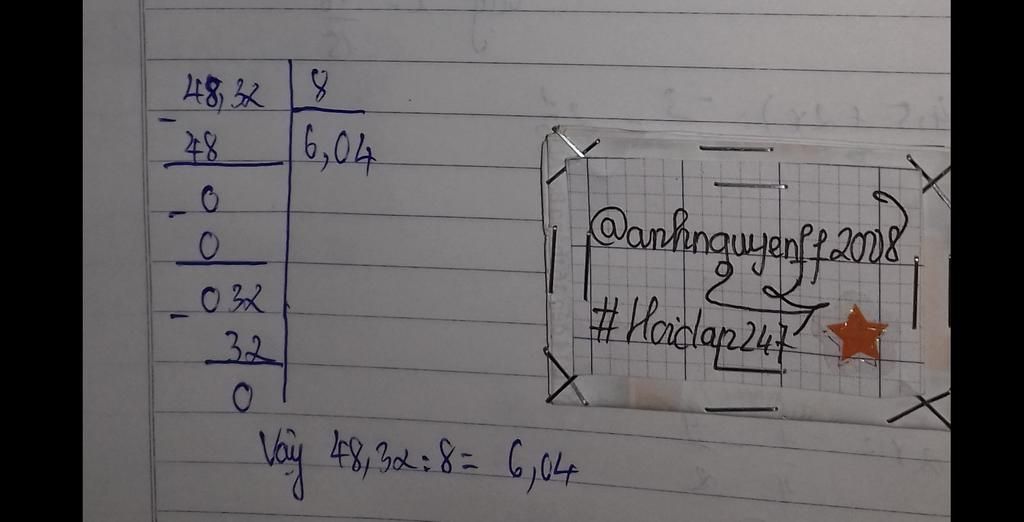 48,32 | 8
- 48 | 6,04
0
- 0
032
- 32
0
Vậy 48,32 : 8 = 6,04
@anhnguyenff2008
#Hoidap247